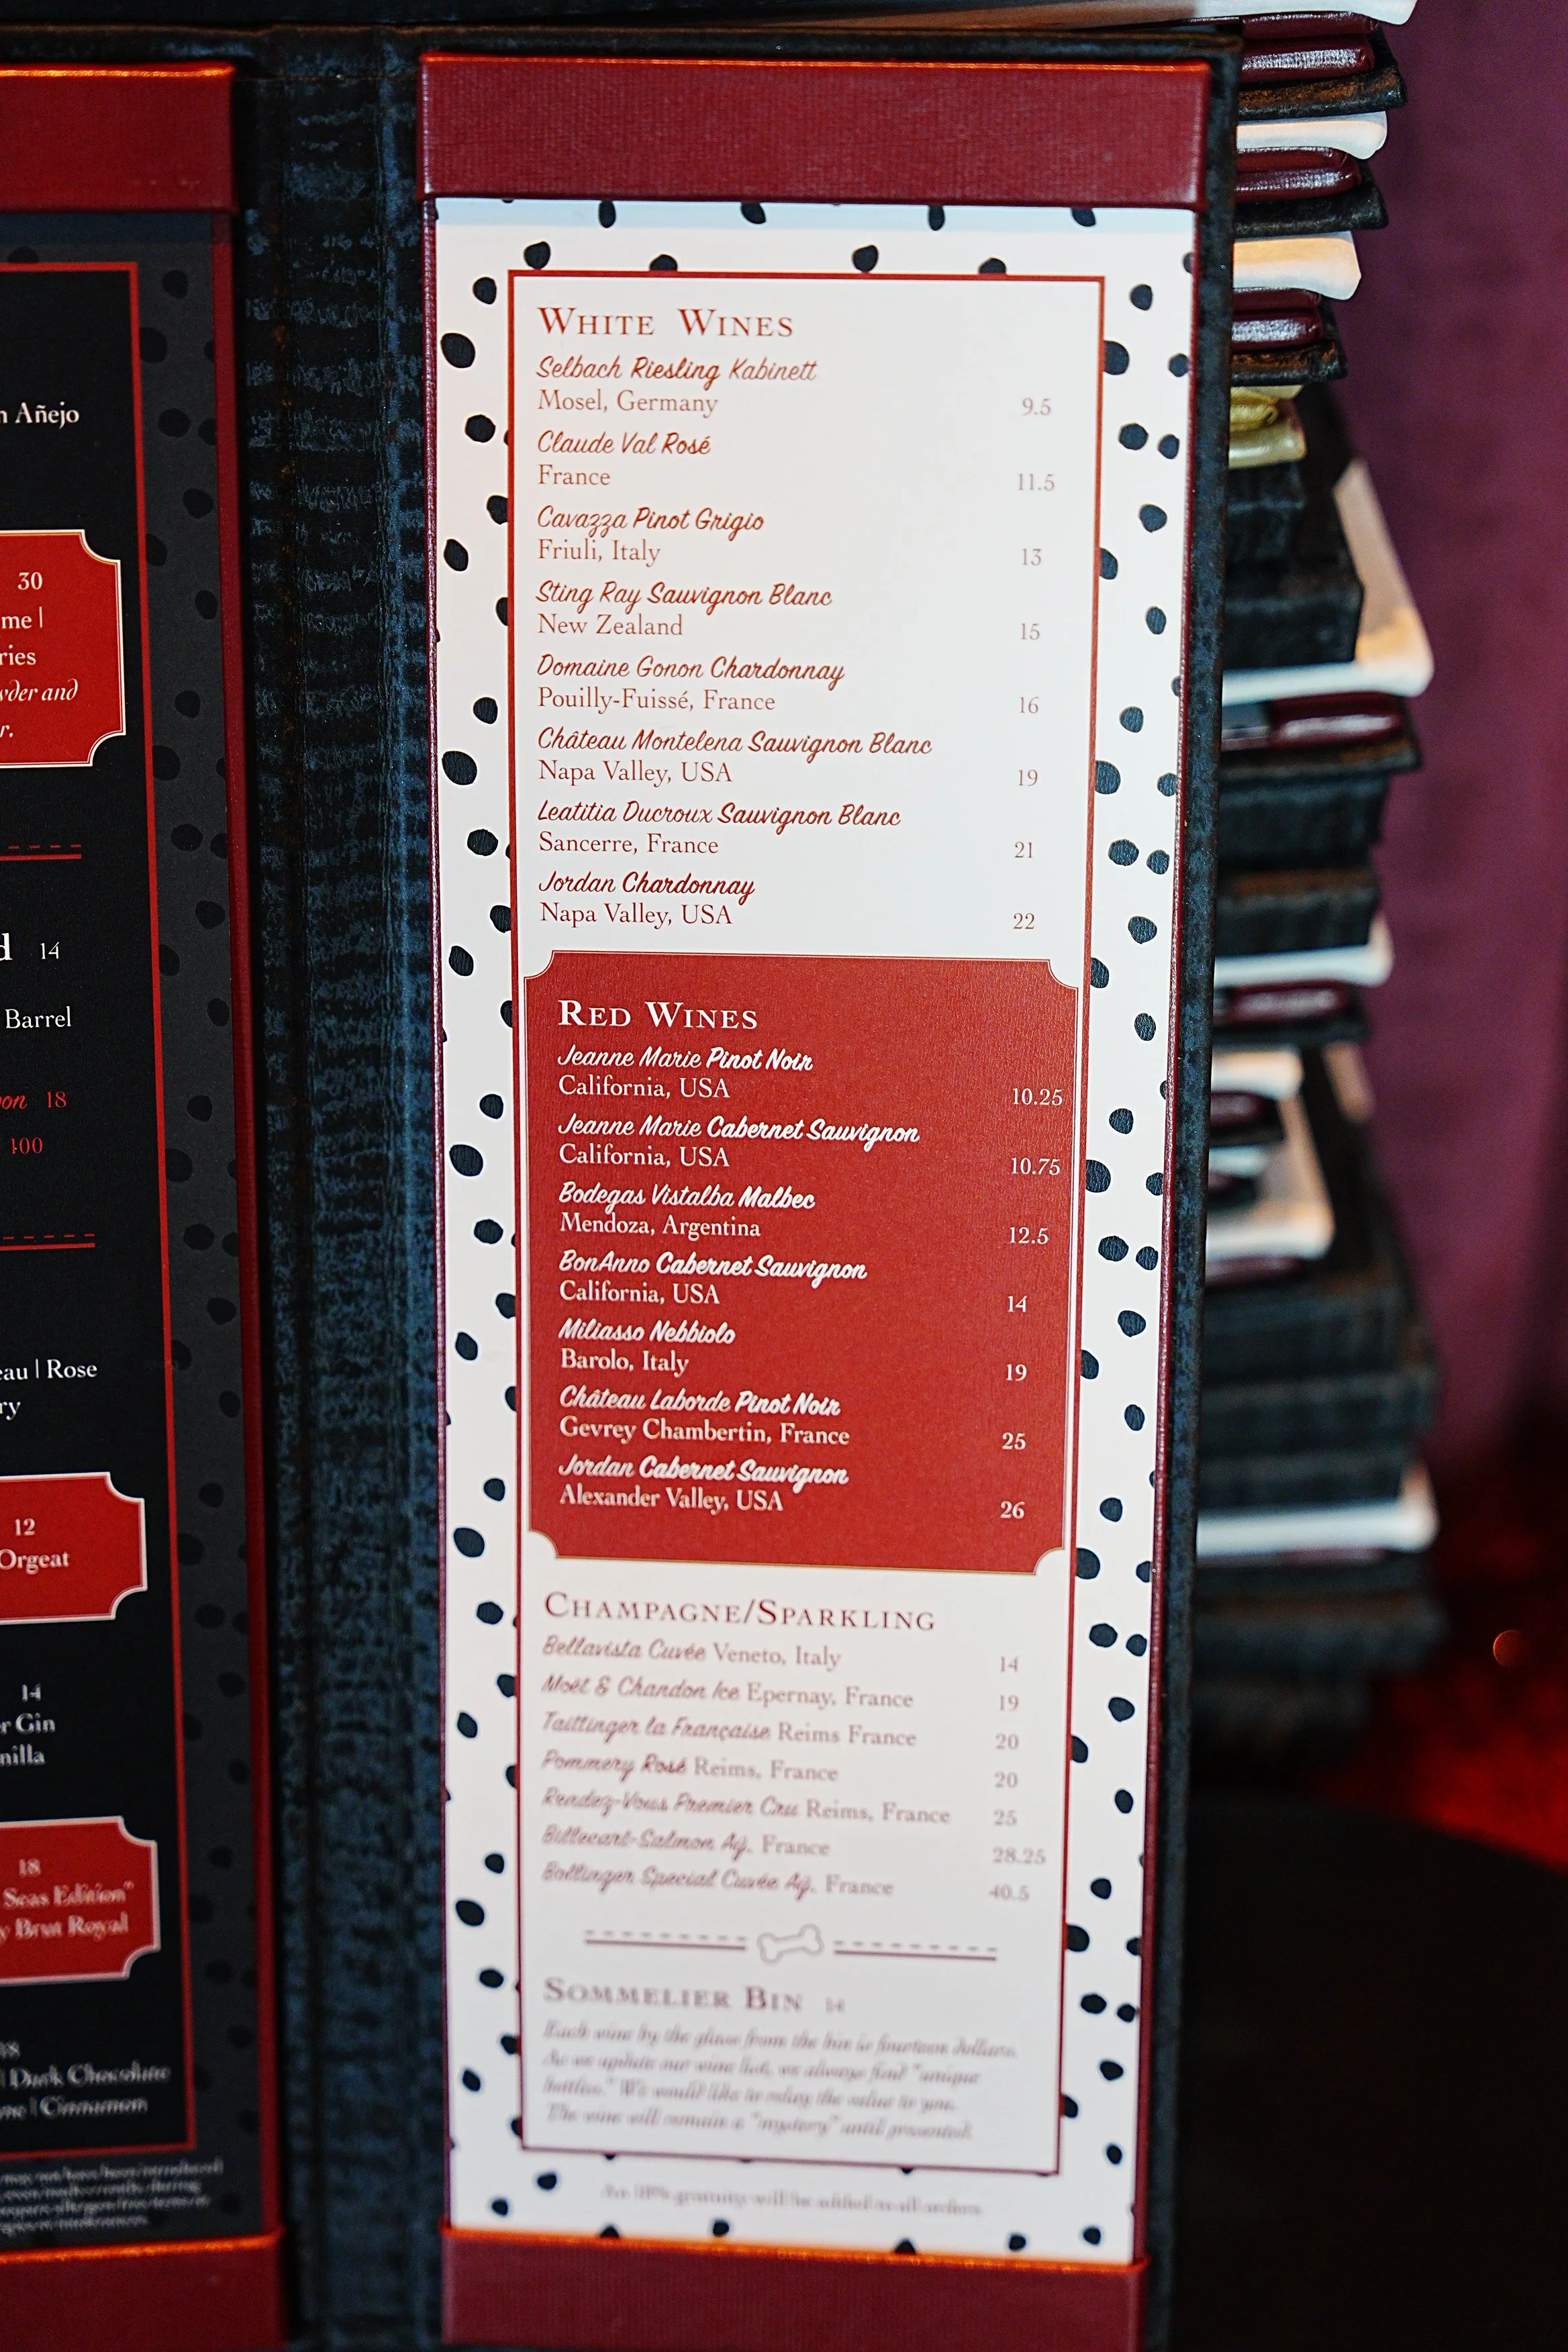 n Añejo
30
me |
ries
wder and
r.
d 14
Barrel
on 18
100
eau | Rose
ry
12
Orgeat
14
r Gin
nilla
18
Seas Edition"
y Brut Royal
18
| Dark Chocolate
| Cinnamon
WHITE WINES
Selbach Riesling Kabinett
Mosel, Germany 9.5
Claude Val Rosé
France 11.5
Cavazza Pinot Grigio
Friuli, Italy 13
Sting Ray Sauvignon Blanc
New Zealand 15
Domaine Gonon Chardonnay
Pouilly-Fuissé, France 16
Château Montelena Sauvignon Blanc
Napa Valley, USA 19
Leatitia Ducroux Sauvignon Blanc
Sancerre, France 21
Jordan Chardonnay
Napa Valley, USA 22
RED WINES
Jeanne Marie Pinot Noir
California, USA 10.25
Jeanne Marie Cabernet Sauvignon
California, USA 10.75
Bodegas Vistalba Malbec
Mendoza, Argentina 12.5
BonAnno Cabernet Sauvignon
California, USA 14
Miliasso Nebbiolo
Barolo, Italy 19
Château Laborde Pinot Noir
Gevrey Chambertin, France 25
Jordan Cabernet Sauvignon
Alexander Valley, USA 26
CHAMPAGNE/SPARKLING
Bellavista Cuvée Veneto, Italy 14
Moët & Chandon Ice Epernay, France 19
Taittinger la Française Reims France 20
Pommery Rosé Reims, France 20
Rendez-Vous Premier Cru Reims, France 25
Billecart-Salmon Aÿ, France 28.25
Bollinger Special Cuvée Aÿ, France 40.5
SOMMELIER BIN 14
Each wine by the glass from the bin is fourteen dollars.
As we update our wine list, we always find "unique
bottles." We would like to relay the value to you.
The wine will remain a "mystery" until presented.
An 18% gratuity will be added to all orders